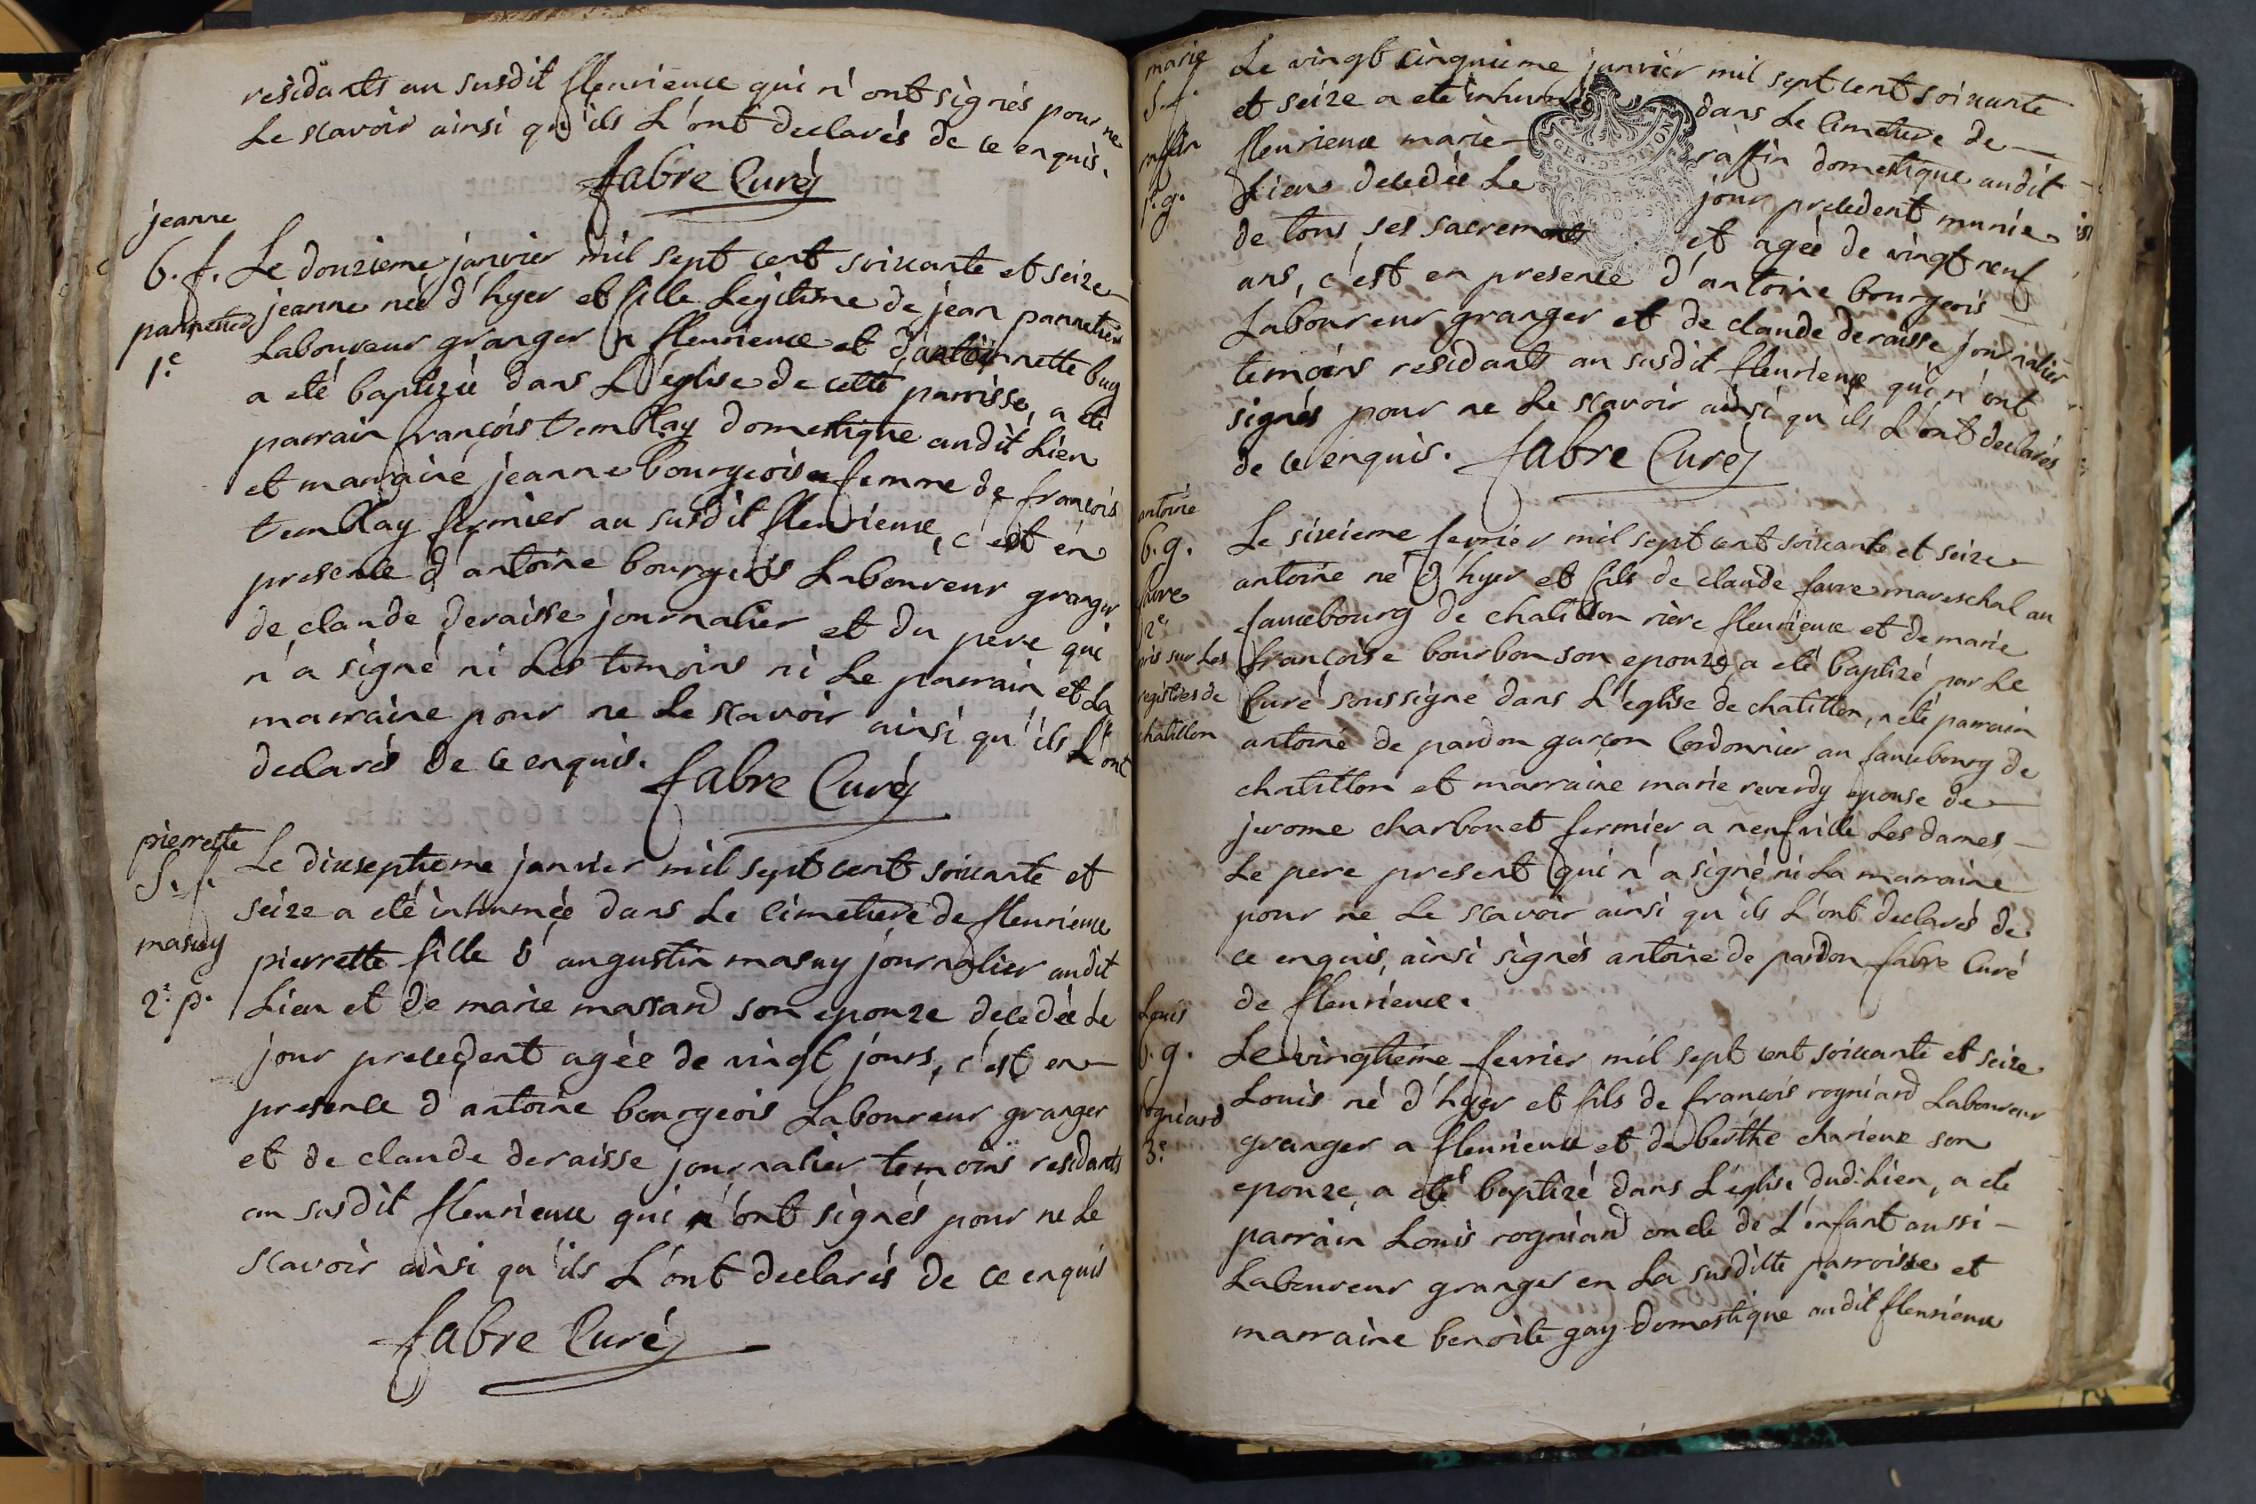 residants au susdit fleurieux qui n'ont signés pour ne
Le scavoir ainsi qu'ils L'ont declarés de ce enquis.
fabre Curé
jeanne
b. f.
pannetier
1.e
Le douzieme janvier mil sept cent soixante et seize
jeanne née d'hyer et fille Legitime de jean pannetier
Laboureur granger a fleurieux et d'antoinette buy
a eté baptizée dans L'église de cette parrisse, a eté
parrain françois tremblay domestique audit Lieu
et marraine jeanne bourgeois femme de françois
tremblay fermier au susdit fleurieux, c'est en
presence d'antoine bourgeois Laboureur granger
de claude deraisse journalier et du pere qui
n'a signé ni Les temoins ni Le parrain et La
marraine pour ne Le scavoir ainsi qu'ils L'ont
declarés de ce enquis.
fabre Curé
pierrette
S. f.
masuy
2.e p.
Le dixseptieme janvier mil sept cent soixante et
seize a eté inhumée dans Le Cimetiere de fleurieux
pierrette fille d'augustin masuy journalier audit
Lieu et de marie massard son epouze decedée Le
jour precedent agée de vingt jours, c'est en
presence d'antoine bourgeois Laboureur granger
et de claude deraisse journalier temoins residants
au susdit fleurieux qui n'ont signés pour ne Le
scavoir ainsi qu'ils L'ont declarés de ce enquis
fabre Curé
marie
S. f.
raffin
p. g.
Le vingt cinquieme janvier mil sept cent soixante
et seize a eté inhumée dans Le Cimetiere de
fleurieux marie raffin domestique audit
Lieu decedée Le jour precedent munie
de tous ses sacrements et agée de vingt neuf
ans, c'est en presence d'antoine bourgeois
Laboureur granger et de claude deraisse journalier
temoins residants au susdit fleurieux qui n'ont
signés pour ne Le scavoir ainsi qu'ils L'ont declarés
de ce enquis. fabre Curé
GEN. DE DIJON
antoine
b. g.
favre
2e
pris sur Les
registres de
chatillon
Le sixieme fevrier mil sept cent soixante et seize
antoine né d'hyer et fils de claude favre mareschal au
fauxbourg de chatillon rière fleurieux et de marie
françoise bourbon son epouze, a eté baptizé par Le
Curé soussigné dans L'église de chatillon, a eté parrain
antoine de pardon garçon Cordonnier au fauxbourg de
chatillon et marraine marie reverdy epouse de
jerome charbonet fermier a neufville Les dames
Le pere present qui n'a signé ni La marraine
pour ne Le scavoir ainsi qu'ils L'ont declarés de
ce enquis, ainsi signés antoine de pardon fabre Curé
de fleurieux.
Louis
b. g.
rogniard
3.e
Le vingtieme fevrier mil sept cent soixante et seize
Louis né d'hyer et fils de françois rogniard Laboureur
granger a fleurieux et de berthe charieux son
epouze, a eté baptizé dans L'église dud. Lieu, a eté
parrain Louis rogniard oncle de L'enfant aussi
Laboureur granger en La susditte parroisse et
marraine benoite gay domestique audit fleurieux